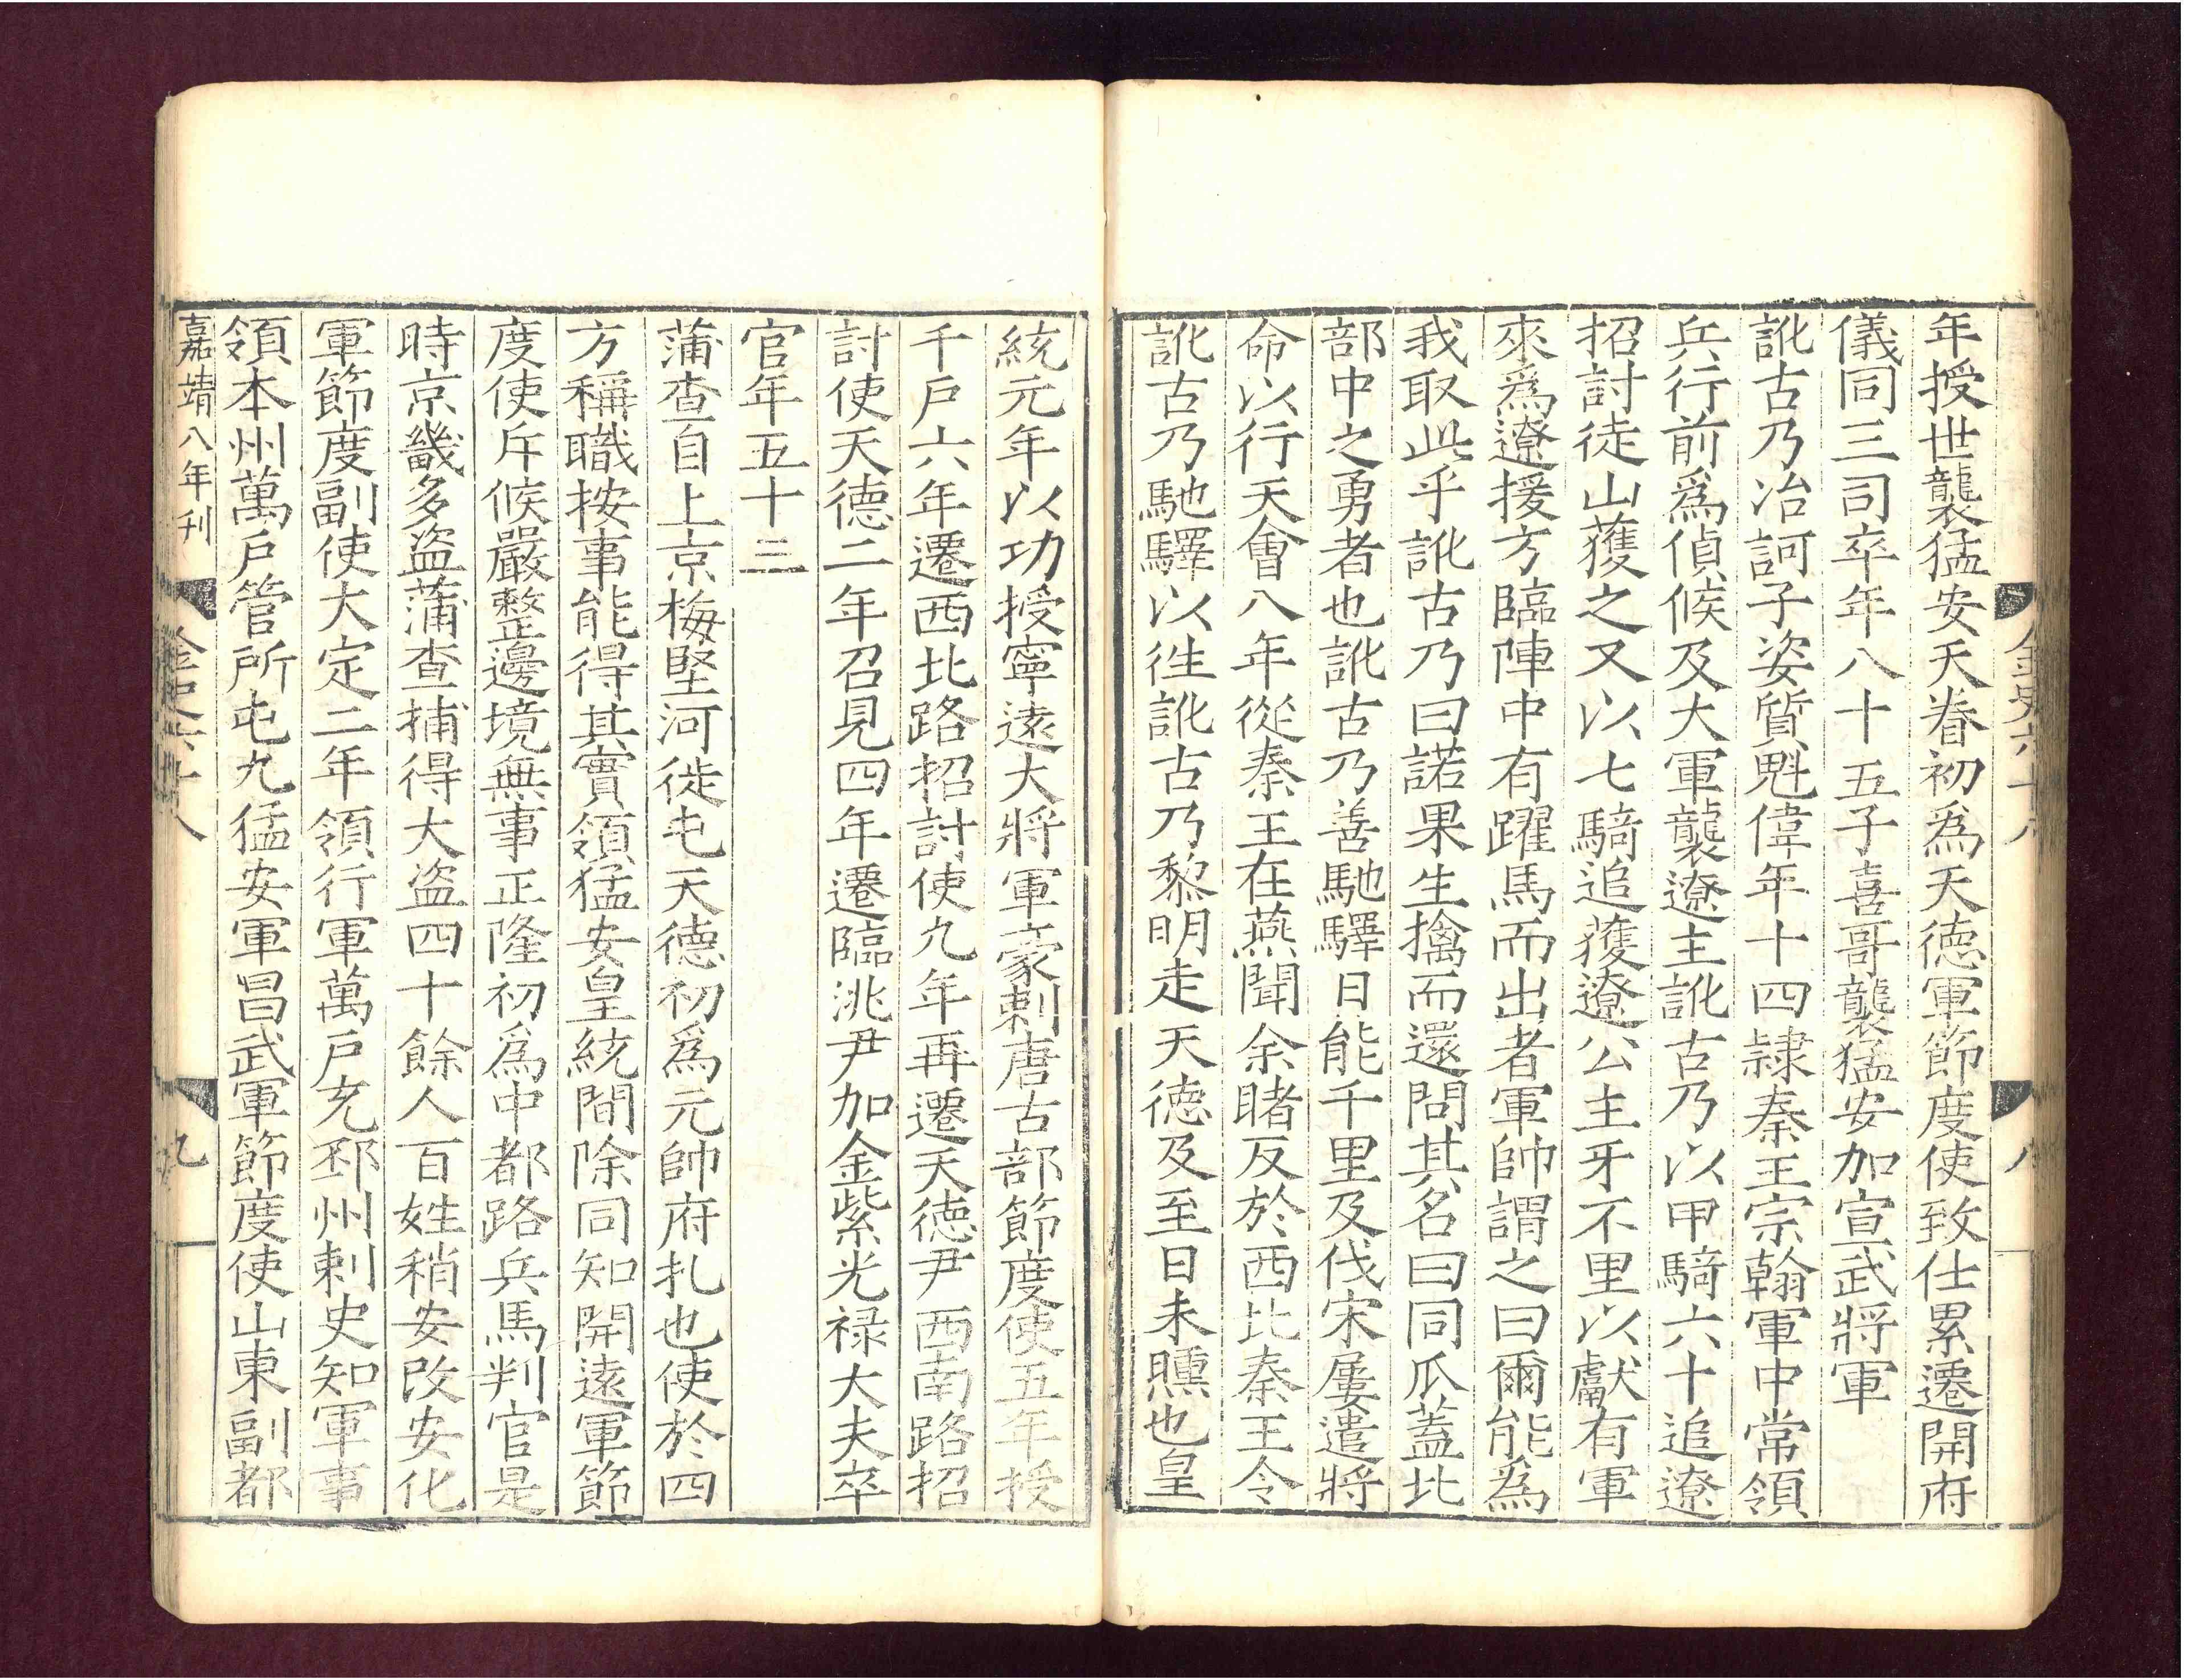 金史六十八 八
年授世襲猛安天眷初爲天德軍節度使致仕累遷開府
儀同三司卒年八十五子喜哥襲猛安加宣武將軍
訛古乃冶訶子姿質魁偉年十四隷秦王宗翰軍中常領
兵行前爲偵候及大軍襲遼主訛古乃以甲騎六十追遼
招討徒山獲之又以七騎追獲遼公主牙不里以獻有軍
來爲遼援方臨陣中有躍馬而出者軍帥謂之曰爾能爲
我取此乎訛古乃曰諾果生擒而還問其名曰同瓜蓋北
部中之勇者也訛古乃善馳驛日能千里及伐宋屢遣將
命以行天會八年從秦王在燕聞余睹反於西北秦王令
訛古乃馳驛以徃訛古乃黎明走天德及至日未曛也皇
統元年以功授寧遠大將軍豪剌唐古部節度使五年授
千戶六年遷西北路招討使九年再遷天德尹西南路招
討使天德二年召見四年遷臨洮尹加金紫光禄大夫卒
官年五十三
蒲查自上京梅堅河徙屯天德初爲元帥府扎也使於四
方稱職按事能得其實領猛安皇統間除同知開遠軍節
度使斥候嚴整邊境無事正隆初爲中都路兵馬判官是
時京畿多盜蒲查捕得大盜四十餘人百姓稍安改安化
軍節度副使大定二年領行軍萬戶充邳州刺史知軍事
領本州萬戶管所屯九猛安軍昌武軍節度使山東副都
嘉靖八年刊 金史六十八 九